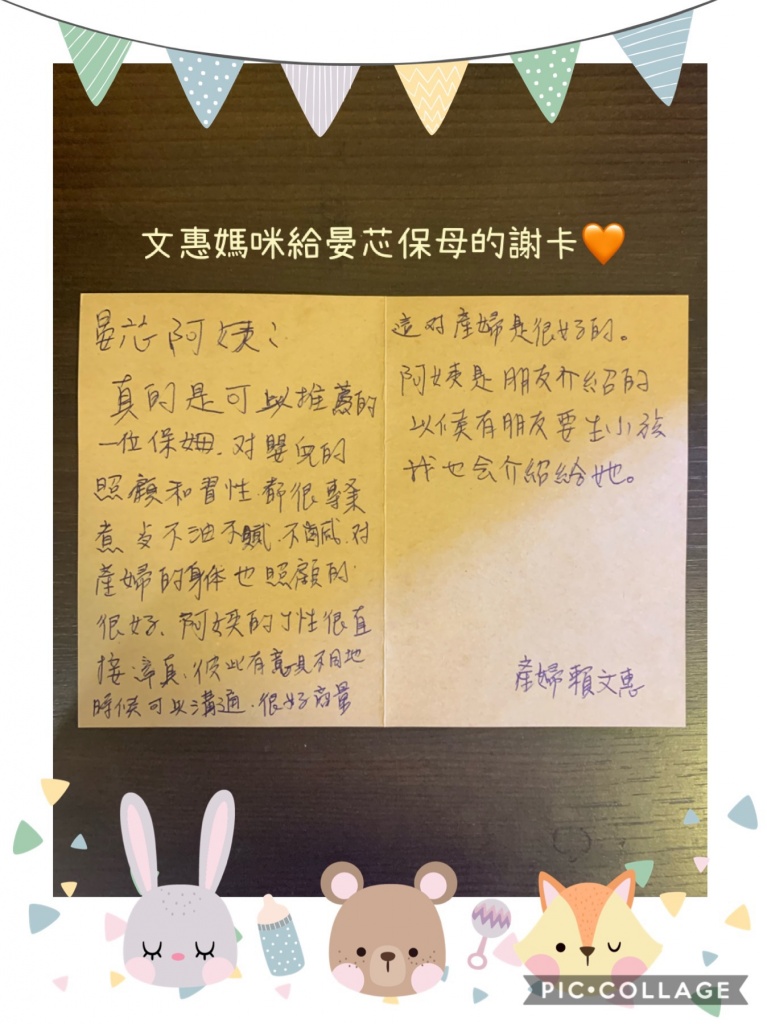 文惠媽咪給晏芯保母的謝卡🧡
晏芯阿姨：
真的是可以推薦的
一位保姆．对嬰兒的
照顧和習性都很專業
煮 不油不膩．不鹹．对
產婦的身体也照顧的
很好、阿姨的 性很直
接率真、彼此有意見不同地
時候可以溝通．很好商量
這对產婦是很好的。
阿姨是朋友介紹的
以後有朋友要生小孩
我也会介紹給她。
產婦賴文惠
PIC•COLLAGE